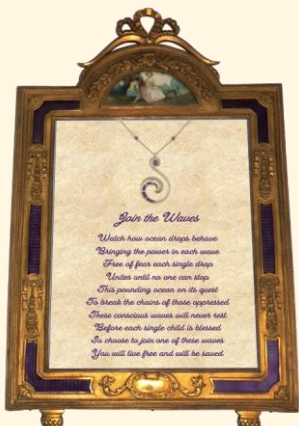 Join the Waves
Watch how ocean drops behave
Bringing the power in each wave
Free of fear each single drop
Unites until no one can stop
This pounding ocean on its quest
To break the chains of those oppressed
These conscious waves will never rest
Before each single child is blessed
So choose to join one of these waves
You will live free and will be saved